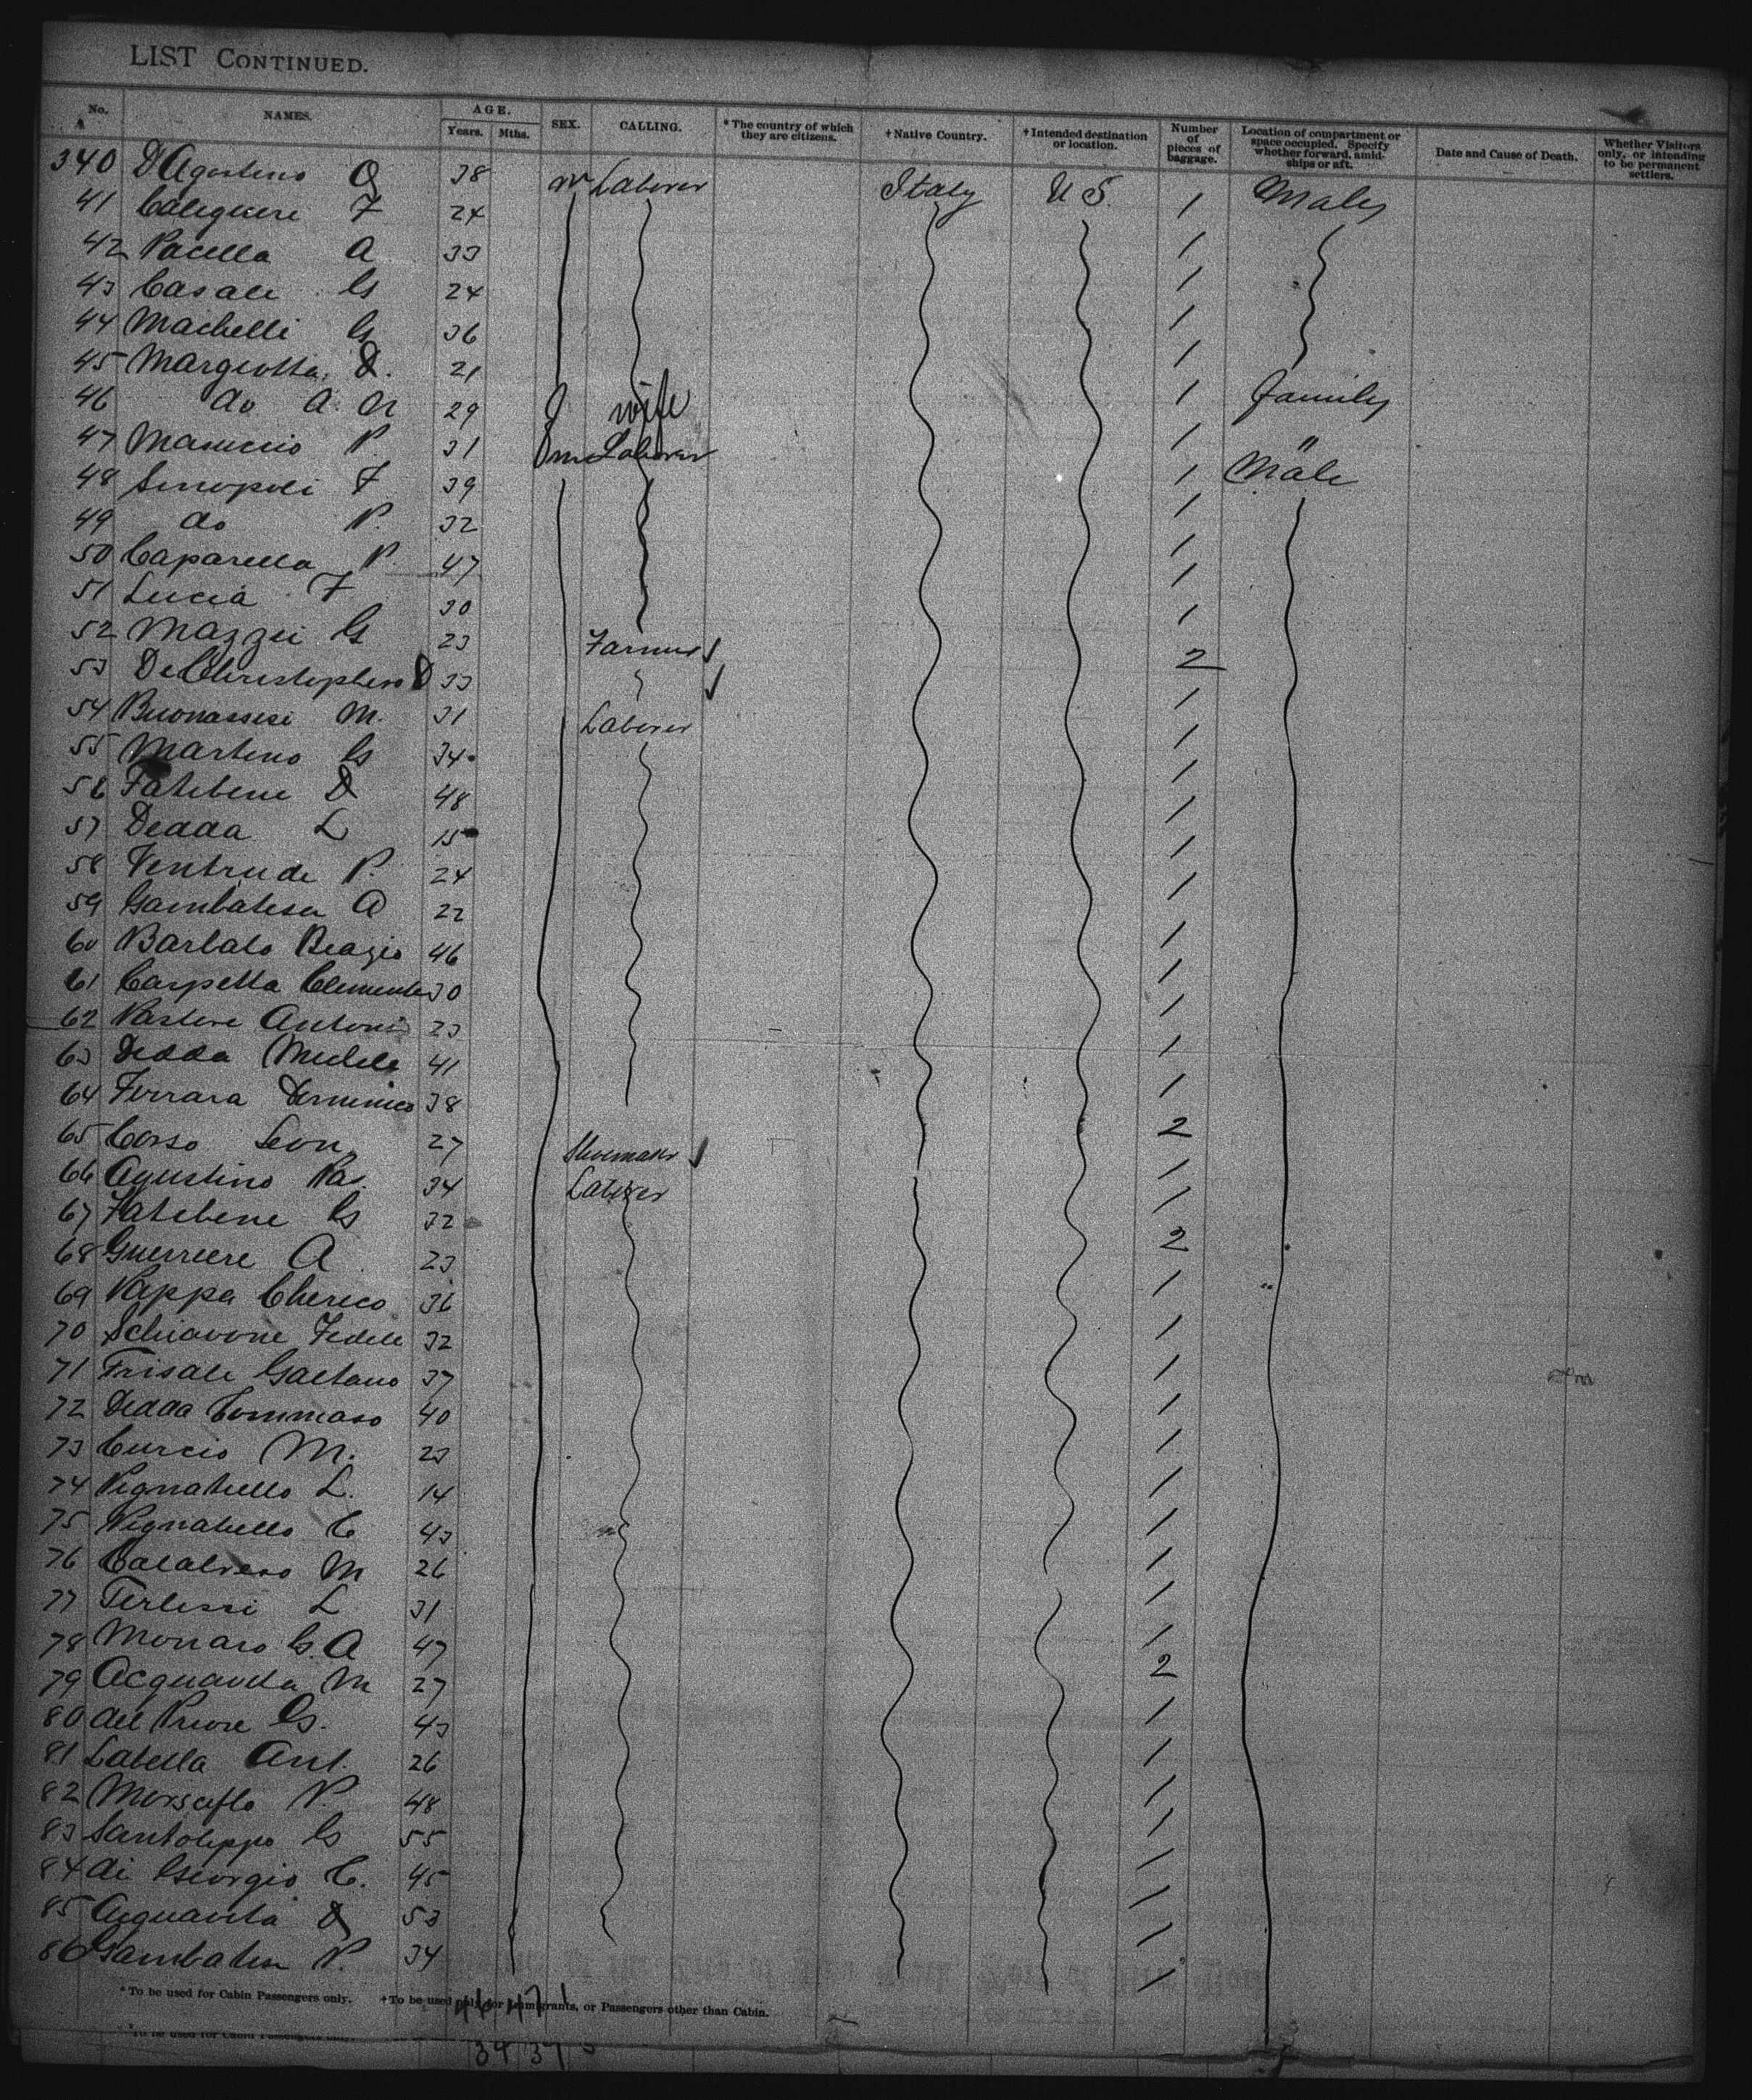 LIST CONTINUED.
No. NAMES. AGE. Years. Mths. SEX. CALLING. * The country of which they are citizens. † Native Country. † Intended destination or location. Number of pieces of baggage. Location of compartment or space occupied. Specify whether forward, amidships or aft. Date and Cause of Death. Whether Visitors only, or intending to be permanent settlers.
340 D'Agostino 38 m Laborer Italy U S. 1 Males
41 Caliguire F 24 1
42 Pacella A 33 1
43 Casale G 24 1
44 Machelli G 36 1
45 Margiotta D. 21 1
46 do A. 29 f wife 1 family
47 P. 31 m Laborer 1 "
48 Sinopoli F 39 1 Male
49 do P. 32 1
50 Caparella P. 47 1
51 Lucia F 30 1
52 Mazzei G 23 Farmer 1
53 De Christophero D 33 2
54 Buonassisi M. 31 Laborer 1
55 Martino G 34 1
56 Fatebene D 48 1
57 Dedda L 15 1
58 Ventrude P. 24 1
59 Gambatesa A 22 1
60 Barbato Biagio 46 1
61 Carpetta Clemente 30 1
62 Pastore Antonio 23 1
63 Dedda Michele 41 1
64 Ferrara Dominico 38 1
65 Corso Leon 27 Shoemaker 2
66 Agustino Pas. 34 Laborer 1
67 Fatebene G 32 1
68 Guerriere A 23 2
69 Pappa Cherico 36 1
70 Schiavone Fedele 32 1
71 Frisale Gaetano 37 1
72 Dedda Tommaso 40 1
73 Curcio M. 23 1
74 Pignatiello L. 14 1
75 Pignatiello C 43 1
76 Calabrese M 26 1
77 Terlessi L 31 1
78 Monaro G. A 47 1
79 Acquavita M 27 2
80 del Priore G. 43 1
81 Labella Ant. 26 1
82 P. 48 1
83 Santolippo G 55 1
84 di Georgio C. 45 1
85 Acquavita D 53 1
86 Gambatesa P. 34 1
* To be used for Cabin Passengers only. † To be used only for Immigrants, or Passengers other than Cabin.